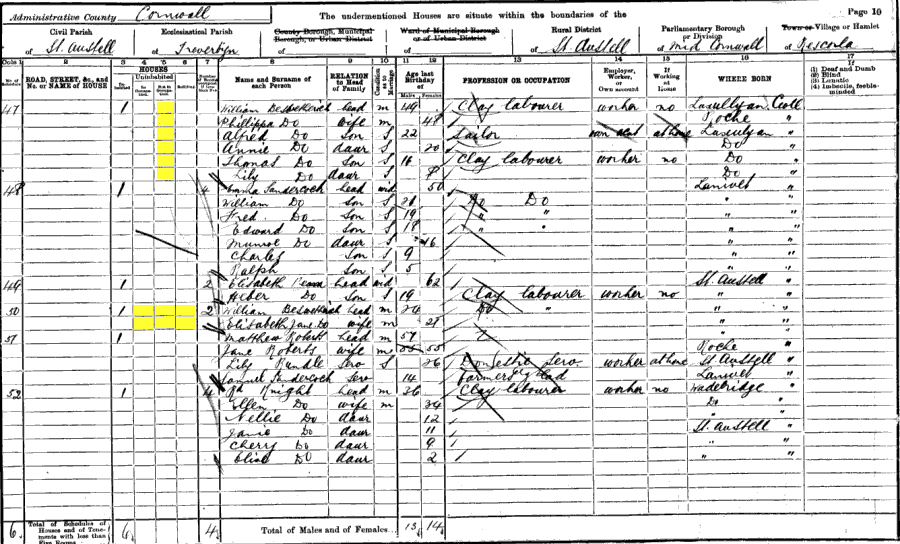 Administrative County Cornwall
The undermentioned Houses are situate within the boundaries of the
Page 10
Civil Parish of St. Austell
Ecclesiastical Parish of Treverbyn
County Borough, Municipal Borough, or Urban District of
Ward of Municipal Borough or of Urban District of
Rural District of St. Austell
Parliamentary Borough or Division of Mid Cornwall
Town or Village or Hamlet of
Cols. 1 2 3 4 5 6 7 8 9 10 11 12 13 14 15 16 17
No. of Schedule
ROAD, STREET, &c., and No. or NAME of HOUSE
HOUSES
Inhabited
Uninhabited
Name and Surname of each Person
RELATION to Head of Family
Condition as to Marriage
Age last Birthday of
Males Females
PROFESSION OR OCCUPATION
Employer, Worker, or Own account
If Working at Home
WHERE BORN
If (1) Deaf and Dumb (2) Blind (3) Lunatic (4) Imbecile, feeble-minded
147 1 William head m 49 Clay labourer worker no
Phillippa Do wife m 48 Roche "
Alfred Do Son S 22 Sailor own acct at home
Annie Do daur S 20 Do "
Thomas Do Son S 16 Clay labourer worker no Do "
Lily Do daur S 8 Do "
148 1 4 head wid 50 Lanivet "
William Do Son S 21 Do Do " "
Fred Do Son S 19 " " " "
Edward Do Son S 18 " " " "
Do daur S 16 " "
Charles Son S 9 " "
Ralph Son S 5 " "
149 1 2 Elisabeth head wid 62 St Austell "
Heber Do Son S 19 Clay labourer worker no " "
50 1 2 William head m Do " " "
Elisabeth Jane Do wife m " "
51 1 Matthew Roberts head m 57 " "
Jane Roberts wife m 55 Roche "
Lily Rundle Serv S 26 Domestic Serv worker at home St Austell "
Samuel Serv 14 Farmers lad Lanivet "
52 1 4 Knight head m 36 Clay labourer worker no Wadebridge "
Ellen Do wife m 34 Do "
Nellie Do daur 12 " "
Janie Do daur 11 St Austell "
Cherry Do daur 9 " "
Do daur 2 " "
6 Total of Schedules of Houses and of Tenements with less than Five Rooms 6 4 Total of Males and of Females... 13 14